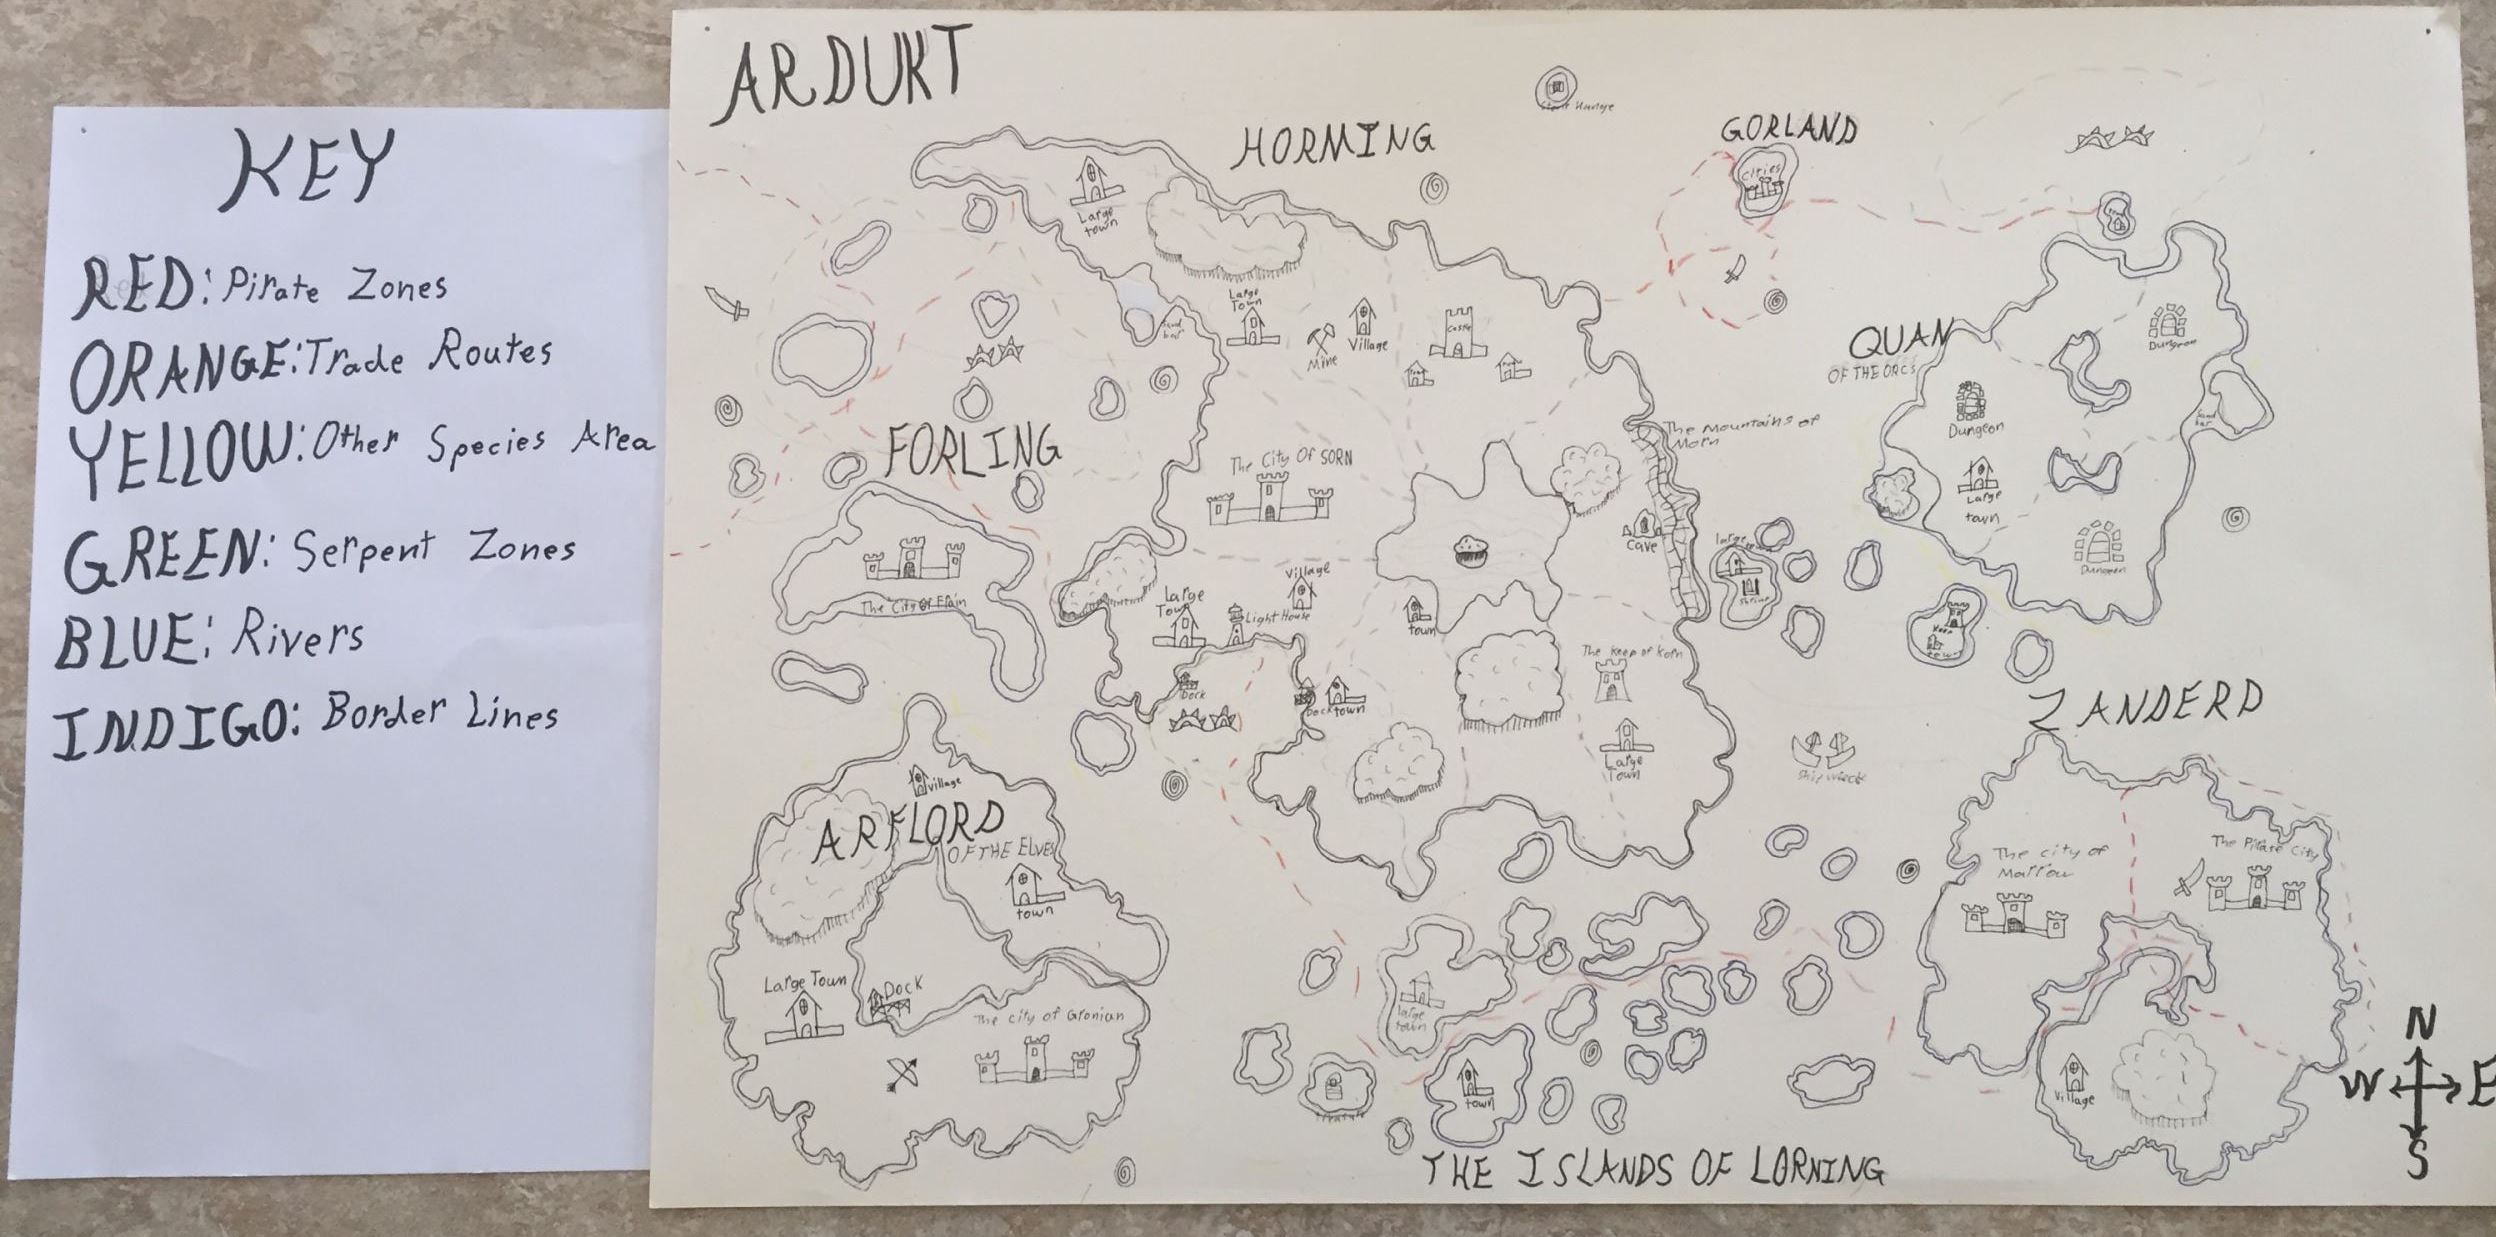 KEY
RED: Pirate Zones
ORANGE: Trade Routes
YELLOW: Other Species Area
GREEN: Serpent Zones
BLUE: Rivers
INDIGO: Border Lines
ARDUKT
HORMING
GORLAND
Cities
Large
town
Large
Town
Mine
Village
Castle
Sand
bar
QUAN
OF THE ORCS
Dungeon
Dungeon
Large
town
Sand
bar
Dungeon
The Mountains of
Morn
FORLING
The City Of SORN
The City Of Flain
Cave
large
Shrine
Village
Large
Town
Light House
town
The Keep of Korn
Dock
Dock
town
Large
Town
Keep
town
Ship wreck
ZANDERD
village
ARFLORD
OF THE ELVES
town
Large Town
Dock
The city of Gronian
The city of
Marrow
The Pirate City
large
town
town
Village
THE ISLANDS OF LORNING
N
W
E
S